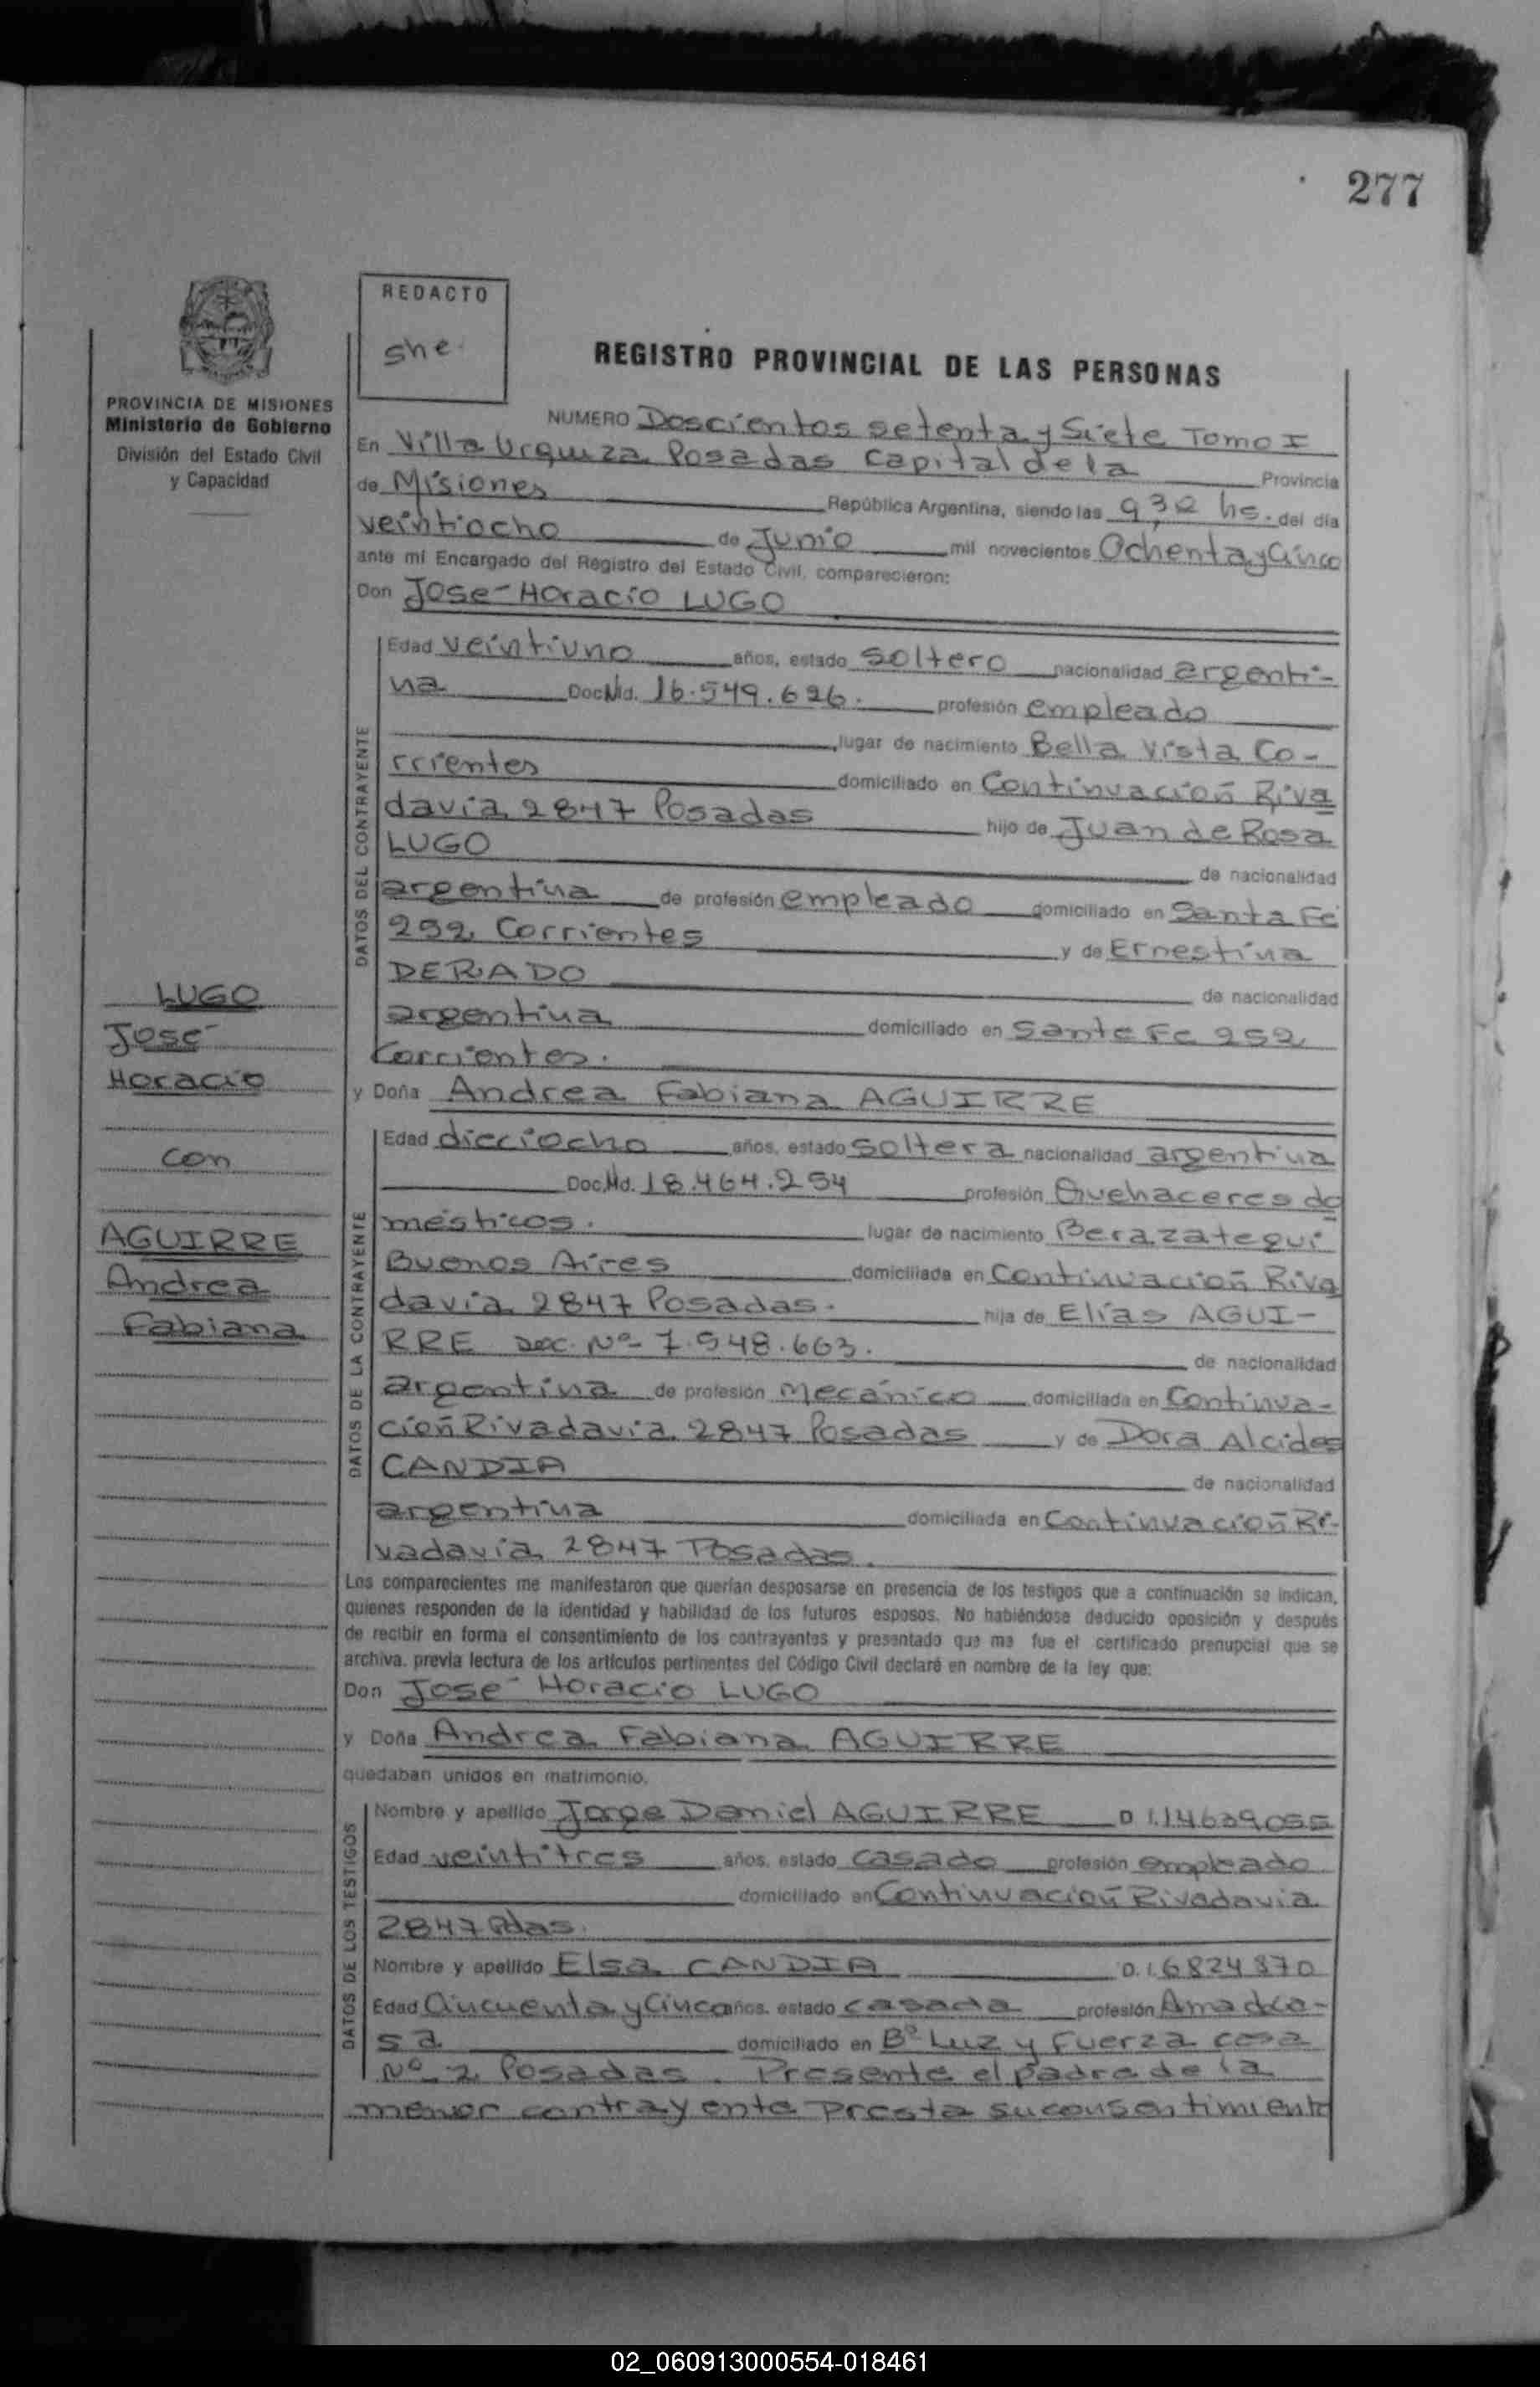 277
REDACTO
she
REGISTRO PROVINCIAL DE LAS PERSONAS
PROVINCIA DE MISIONES
Ministerio de Gobierno
División del Estado Civil
y Capacidad
NUMERO Doscientos setenta y Siete Tomo I
En Villa Urquiza Posadas Capital de la Provincia
de Misiones República Argentina, siendo las 9,30 hs. del día
veintiocho de Junio mil novecientos Ochenta y Cinco
ante mí Encargado del Registro del Estado Civil, comparecieron:
Don José Horacio LUGO
DATOS DEL CONTRAYENTE
Edad veintiuno años, estado soltero nacionalidad argenti-
na Doc. Nld. 16.549.626. profesión empleado
lugar de nacimiento Bella Vista Co-
rrientes domiciliado en Continuación Riva
davia 2847 Posadas hijo de Juan de Rosa
LUGO de nacionalidad
argentina de profesión empleado domiciliado en Santa Fé
252 Corrientes y de Ernestina
DERADO de nacionalidad
argentina domiciliado en Santa Fe 252
Corrientes.
y Doña Andrea Fabiana AGUIRRE
DATOS DE LA CONTRAYENTE
Edad dieciocho años, estado soltera nacionalidad argentina
Doc. Nld. 18.464.254 profesión Quehaceres do
mésticos. lugar de nacimiento Berazategui
Buenos Aires domiciliada en Continuación Riva
davia 2847 Posadas. hija de Elías AGUI-
RRE Doc. Nº 7.548.663. de nacionalidad
argentina de profesión mecánico domiciliada en Continua-
ción Rivadavia 2847 Posadas y de Dora Alcides
CANDIA de nacionalidad
argentina domiciliada en Continuación Ri-
vadavia 2847 Posadas.
LUGO
José
Horacio
con
AGUIRRE
Andrea
Fabiana
Los comparecientes me manifestaron que querían desposarse en presencia de los testigos que a continuación se indican,
quienes responden de la identidad y habilidad de los futuros esposos. No habiéndose deducido oposición y después
de recibir en forma el consentimiento de los contrayentes y presentado que me fue el certificado prenupcial que se
archiva. previa lectura de los artículos pertinentes del Código Civil declaré en nombre de la ley que:
Don José Horacio LUGO
y Doña Andrea Fabiana AGUIRRE
quedaban unidos en matrimonio.
DATOS DE LOS TESTIGOS
Nombre y apellido Jorge Daniel AGUIRRE D.I.14639055
Edad veintitres años, estado casado profesión empleado
domiciliado en Continuación Rivadavia
2847 Pdas.
Nombre y apellido Elsa CANDIA D.I.6824370
Edad Cincuenta y Cinco años. estado casada profesión Ama de ca-
sa domiciliado en Bº Luz y Fuerza casa
Nº 2 Posadas. Presente el padre de la
menor contrayente presta su consentimiento
02_060913000554-018461